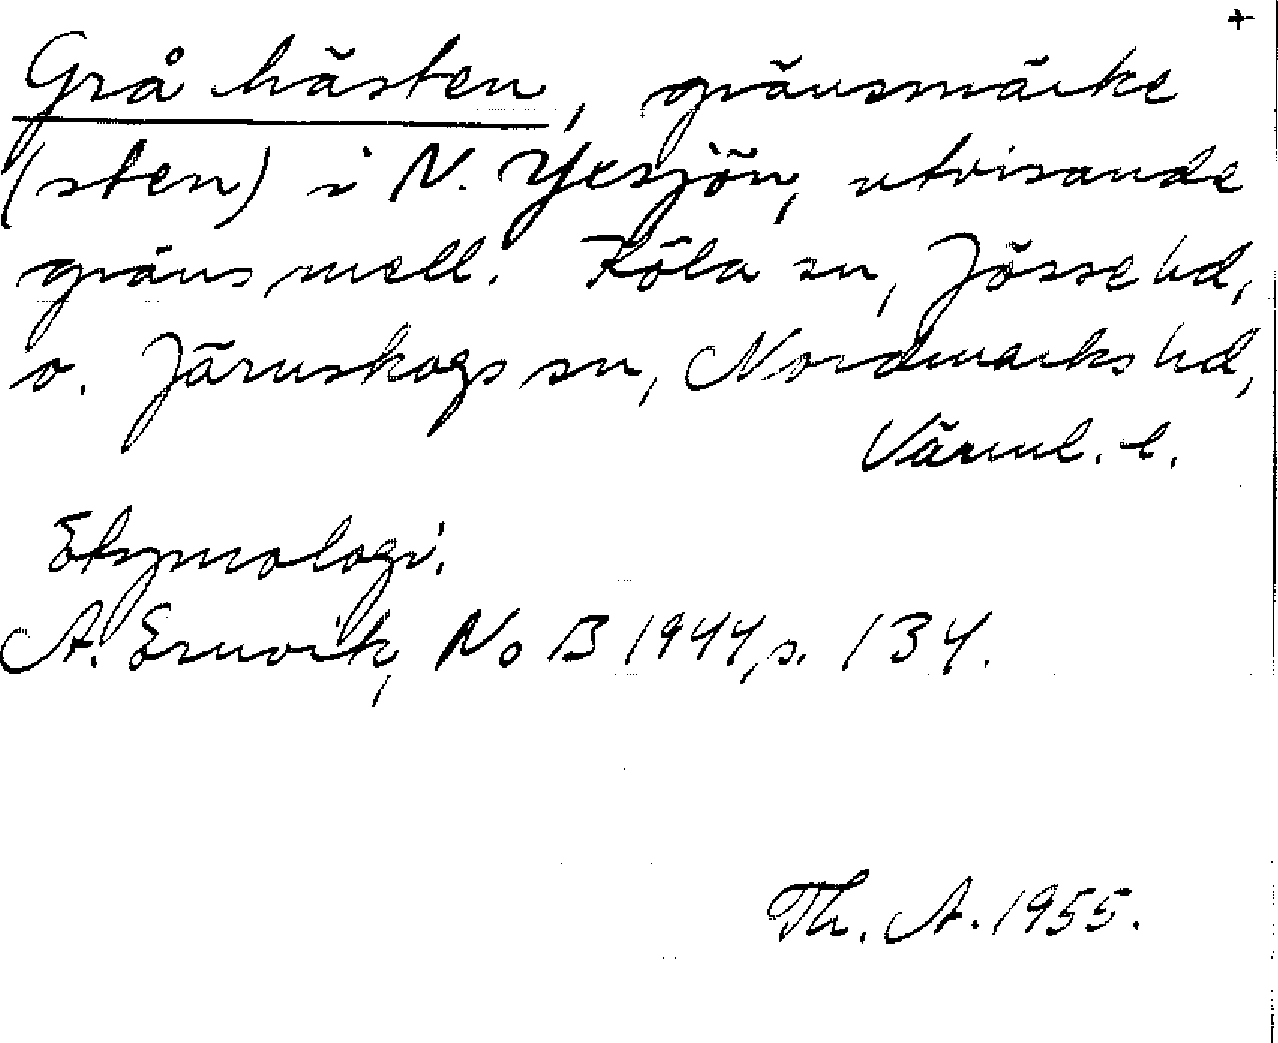 +
Grå hästen, gränsmärke
(sten) i N. Yesjön, utvisande
gräns mell. Köla sn, Jösse hd,
o. Järnskogs sn, Nordmarks hd,
Värml. l.
Etymologi.
A. Ernvik, NoB 1944, s. 134.
Th. A. 1955.